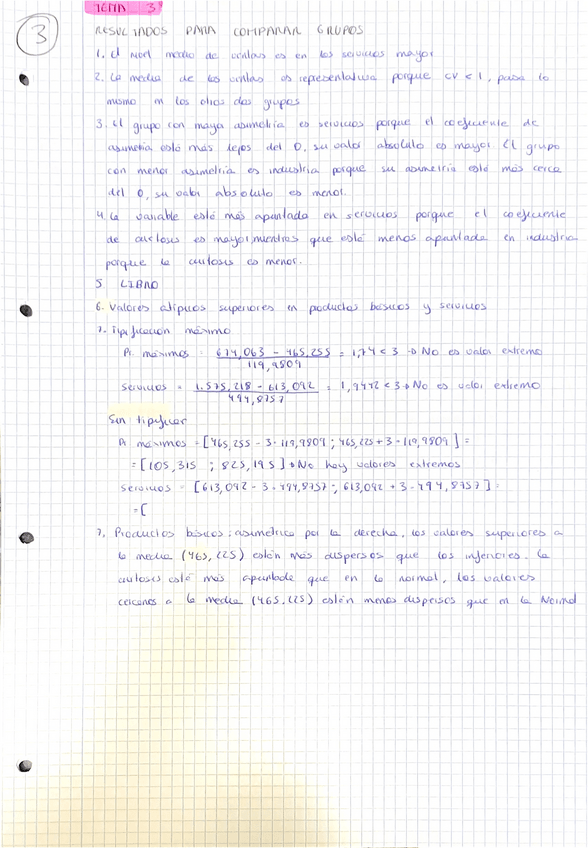 TEMA 3
3
RESULTADOS PARA COMPARAR GRUPOS
1. El nivel medio de ventas es en los servicios mayor
2. La media de las ventas es representativa porque CV < 1, pasa lo
mismo en los otros dos grupos
3. El grupo con mayor asimetría es servicios porque el coeficiente de
asimetría está más lejos del 0, su valor absoluto es mayor. El grupo
con menor asimetría es industria porque su asimetría está más cerca
del 0, su valor absoluto es menor.
4. La variable está más apuntada en servicios porque el coeficiente
de curtosis es mayor, mientras que está menos apuntada en industria
porque la curtosis es menor.
5 LIBRO
6. Valores atípicos superiores en productos básicos y servicios
7. Tipificación máximo
Pr. máximos = 674,063 - 465,255 / 119,9809 = 1,74 < 3 → No es valor extremo
Servicios = 1.575,218 - 613,092 / 494,8757 = 1,9442 < 3 → No es valor extremo
Sin tipificar
Pr máximos = [465,255 - 3 · 119,9809 ; 465,225 + 3 · 119,9809] =
= [105,315 ; 825,195] → No hay valores extremos
Servicios = [613,092 - 3 · 494,8757 ; 613,092 + 3 · 494,8757] =
= [
7, Productos básicos: asimétrica por la derecha, los valores superiores a
la media (465,225) están más dispersos que los inferiores. La
curtosis está más apuntada que en la normal, los valores
cercanos a la media (465,225) están menos dispersos que en la Normal